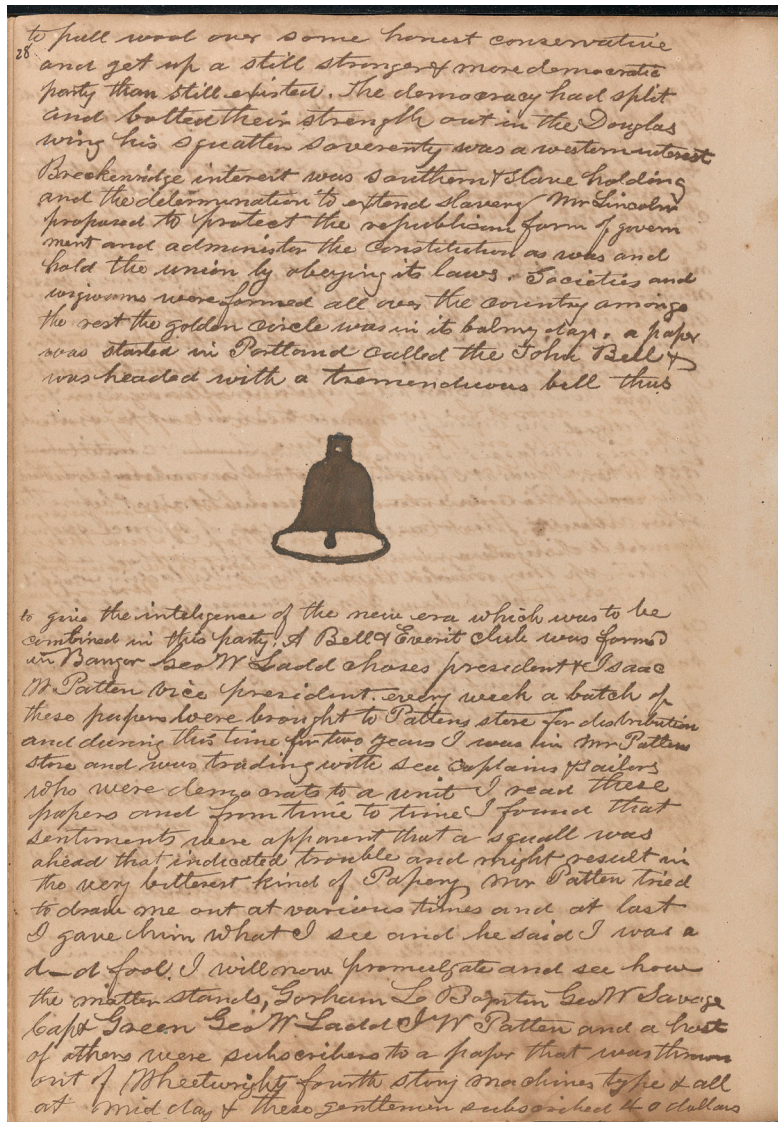 to pull wool over some honest conservative
28
and get up a still stronger & more democratic
party than still existed. The democracy had split
and bolted their strength out in the Douglas
wing his squatten soverenty was a western interest
Breckenridge interest was southern & slave holding
and the determination to extend slavery Mr Lincoln
proposed to protect the republican form of govern
ment and administer the constitution as was and
hold the union by obeying its laws. Societies and
wigwams were formed all over the country amongs
the rest the golden circle was in its balmy days. a paper
was started in Portland called the John Bell &
was headed with a tremenduous bell thus
to give the inteligence of the new era which was to be
combined in this party. A Bell & Everit club was formed
in Bangor Geo W Ladd choses president & Isaac
W Patten vice president. every week a batch of
these papers were brought to Pattens store for distribution
and during this time for two years I was in Mr Pattens
store and was trading with sea captains & sailors
who were democrats to a unit I read these
papers and from time to time I found that
sentiments were apparent that a squall was
ahead that indicated trouble and might result in
the very bitterest kind of Papery Mr Patten tried
to draw me out at various times and at last
I gave him what I see and he said I was a
d—d fool. I will now promulgate and see how
the matter stands, Gorham L Boynton Geo W Savage
Capt Green Geo W Ladd I W Patten and a host
of others were subscribers to a paper that was thrown
out of Wheelwrights fourth story machines type & all
at mid day & these gentlemen subscribed 40 dollars